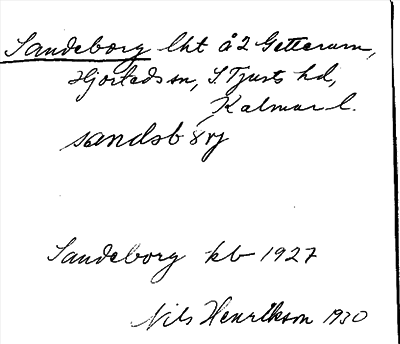 Sandeborg lht å 2 Getterum,
Hjorteds sn, S Tjusts hd,
Kalmar l.
sandsbörj
Sandeborg kb 1927
Nils Henrikson 1930